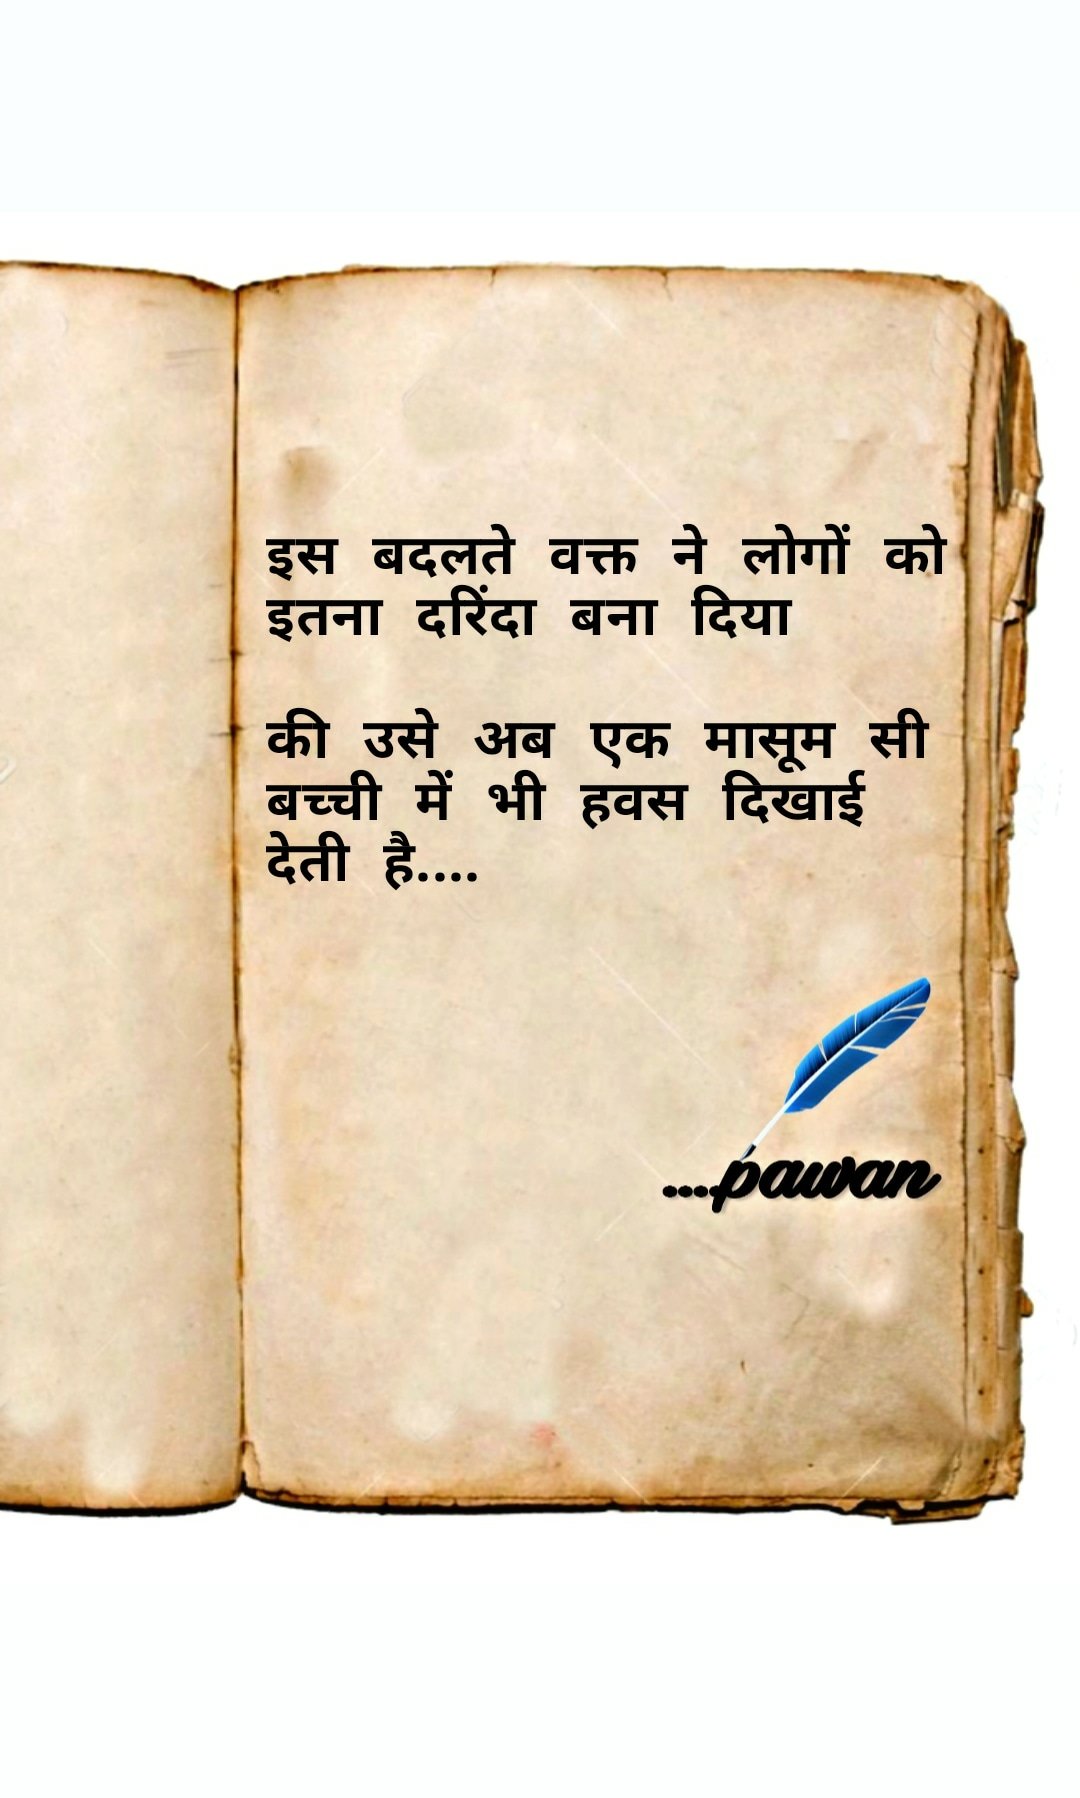 इस बदलते वक्त ने लोगों को
इतना दरिंदा बना दिया
की उसे अब एक मासूम सी
बच्ची में भी हवस दिखाई
देती है....
....pawan